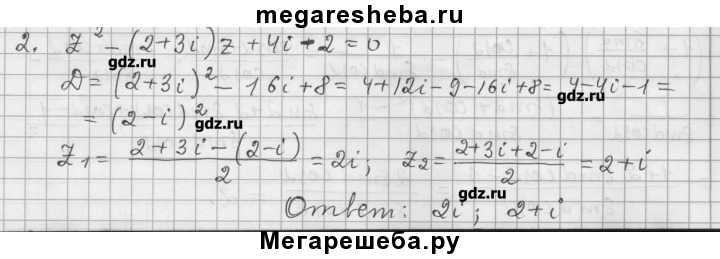 megaresheba.ru
2. z² - (2+3i)z + 4i - 2 = 0
gdz.ru
D = (2+3i)² - 16i + 8 = 4 + 12i - 9 - 16i + 8 = 4 - 4i - 1 =
gdz.ru gdz.ru
= (2-i)²
gdz.ru
z₁ = (2+3i-(2-i))/2 = 2i; z₂ = (2+3i+2-i)/2 = 2+i
gdz.ru
Ответ: 2i; 2+i
Мегарешеба.ру